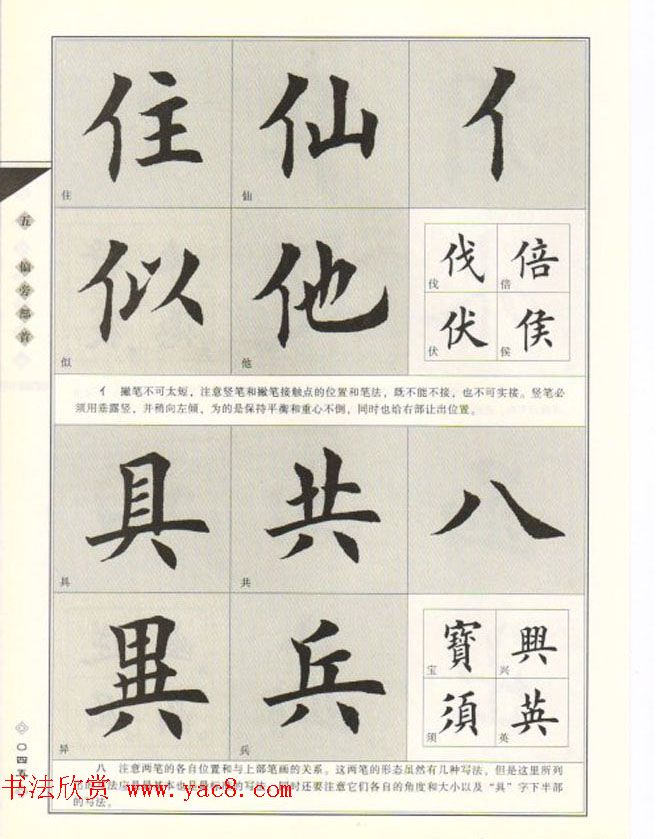 住 仙 亻
住 仙
似 他
似 他
伐 倍
伐 倍
伏 侯
伏 侯
五 偏旁部首
亻 撇笔不可太短，注意竖笔和撇笔接触点的位置和笔法，既不能不接，也不可实接。竖笔必
须用垂露竖，并稍向左倾，为的是保持平衡和重心不倒，同时也给右部让出位置。
具 共 八
具 共
異 兵
异 兵
寶 興
宝 兴
須 英
须 英
八 注意两笔的各自位置和与上部笔画的关系。这两笔的形态虽然有几种写法，但是这里所列
同时还要注意它们各自的角度和大小以及“具”字下半部
的写法。
书法欣赏 www.yac8.com